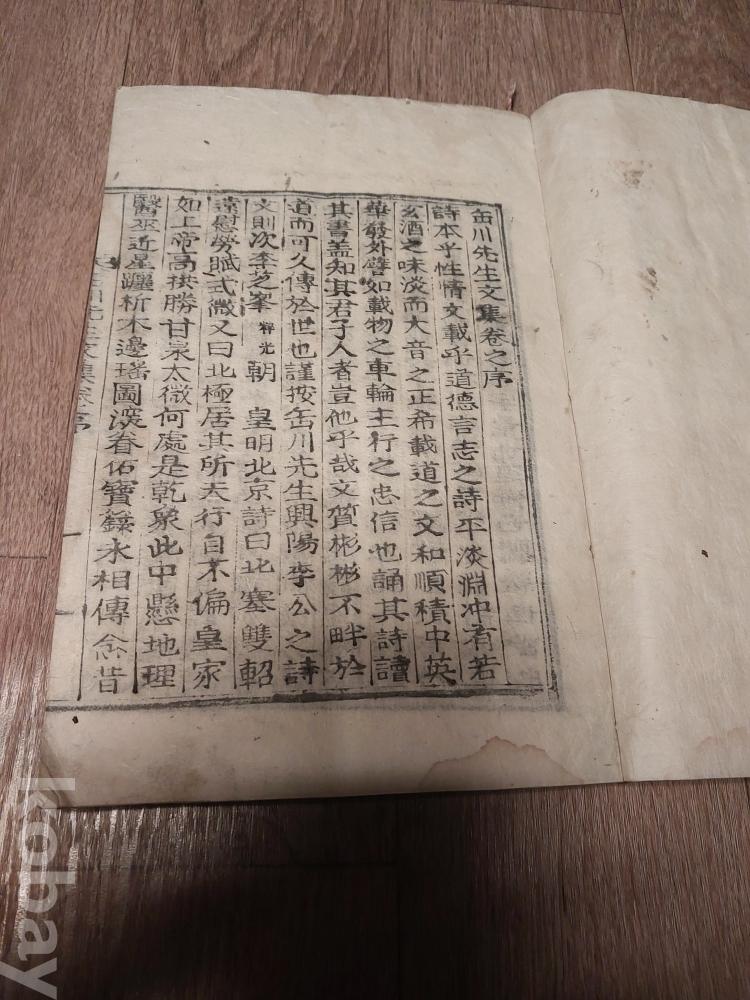 缶川先生文集卷之序
詩本乎性情文載乎道德言志之詩平淡淵冲有若
玄酒之味淡而大音之正希載道之文和順積中英
華發外譬如載物之車輪主行之忠信也誦其詩讀
其書盖知其君子人者豈他乎哉文質彬彬不畔於
道而可久傳於世也謹按缶川先生興陽李公之詩
文則次李芝峯睟光朝 皇明北京詩曰北塞雙軺
遠慰勞賦式微又曰北極居其所天行自不偏皇家
如上帝高拱勝甘泉太微何處是乾象此中懸地理
醫巫近星躔析木邊瑤圖深眷佑寶籙永相傳念昔
川先生文集卷 序
kobay